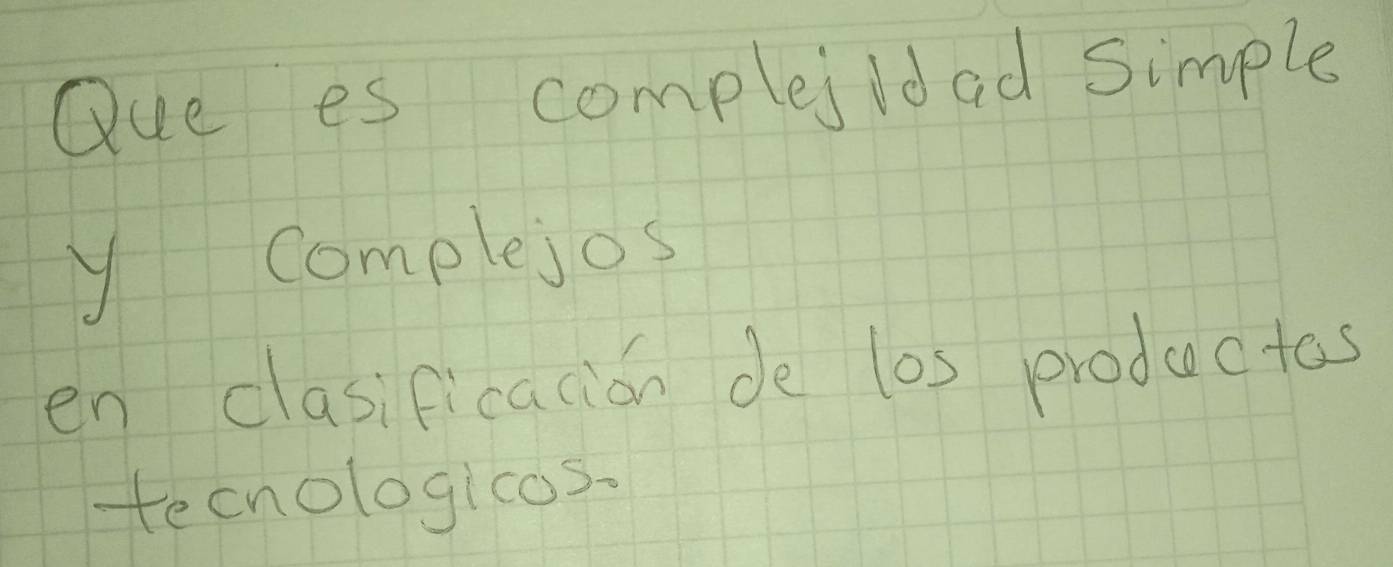 Que es complejidad simple
y complejos
en clasificación de los productos
tecnologicos.